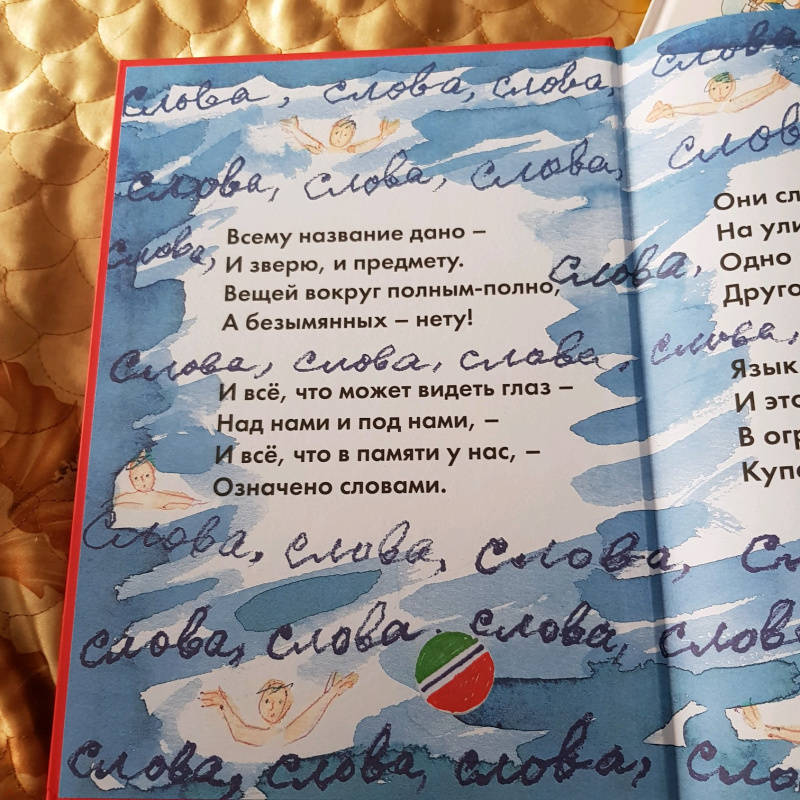 слова, слова, слова,
слова, слова, слова,
слова,
Всему название дано –
И зверю, и предмету.
Вещей вокруг полным-полно,
А безымянных – нету!
слова,
слова, слова, слова,
И всё, что может видеть глаз –
Над нами и под нами, –
И всё, что в памяти у нас, –
Означено словами.
слова, слова, слова,
слова, слова. слова,
слова, слова, слова,
слова
слова
Они
На
Одно
слова,
Язык
И
В
слова
слова